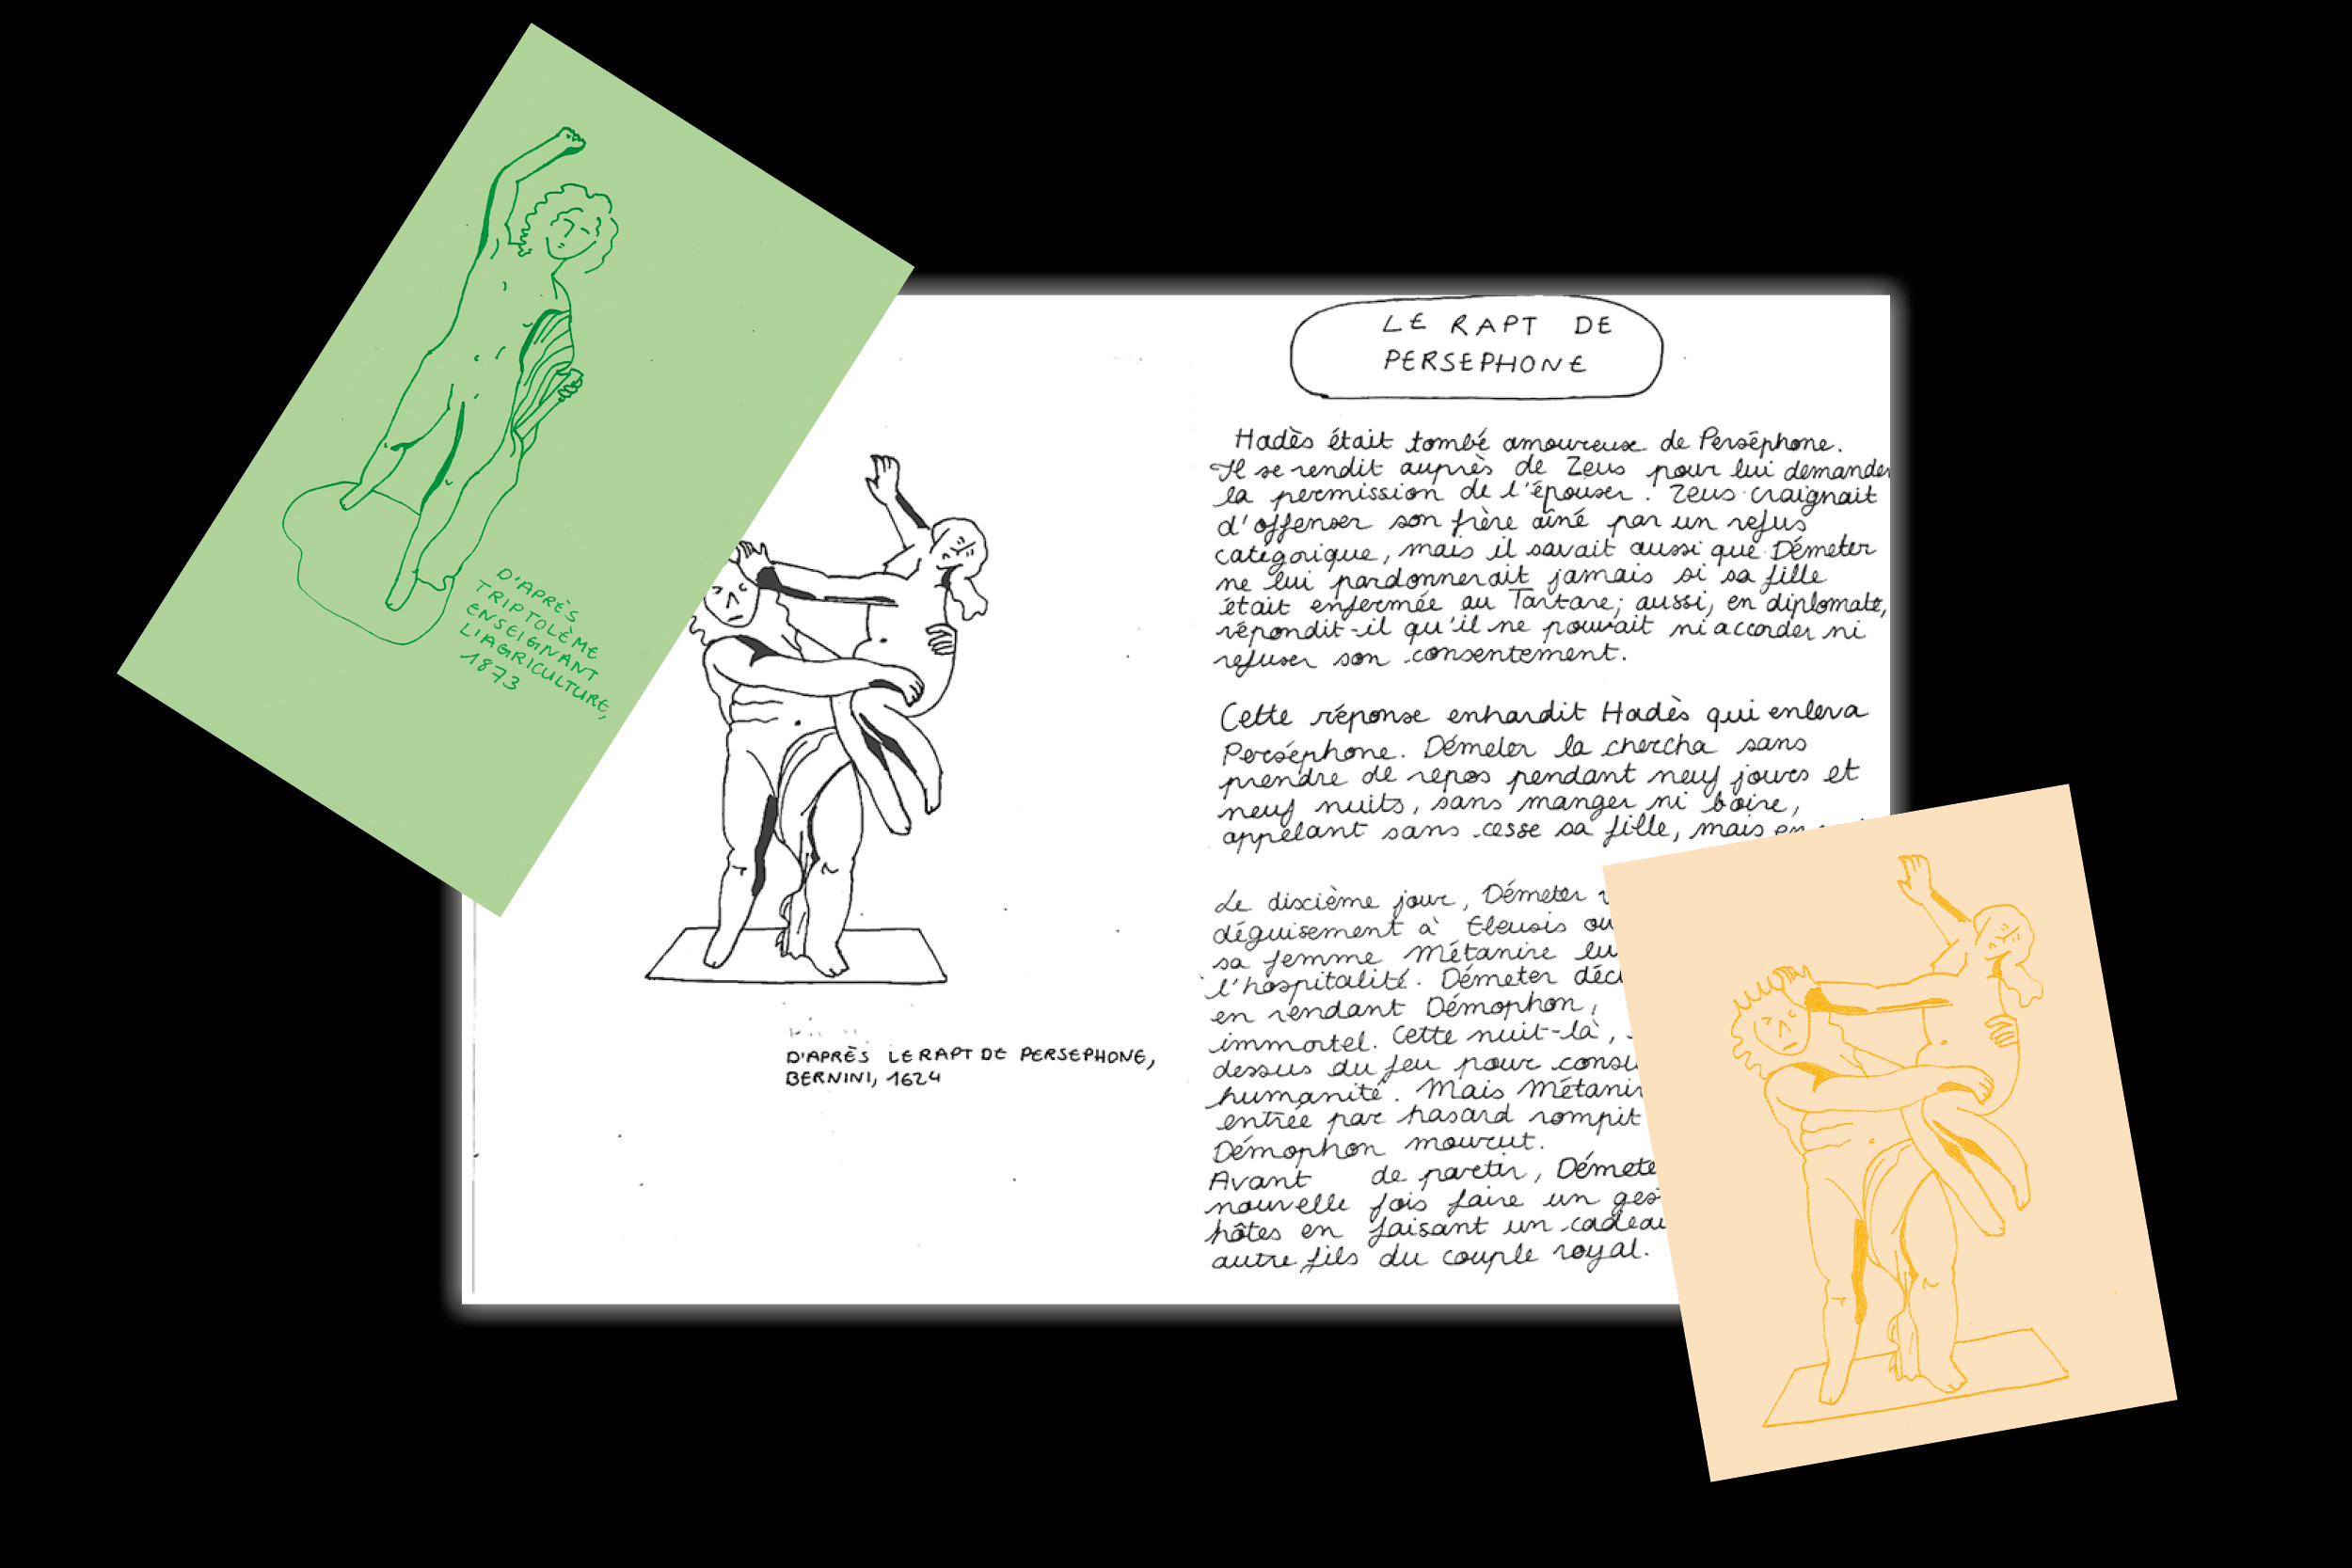 D'APRÈS
TRIPTOLÈME
ENSEIGNANT
L'AGRICULTURE,
1873
D'APRÈS LE RAPT DE PERSEPHONE,
BERNINI, 1624
LE RAPT DE
PERSEPHONE
Hadès était tombé amoureux de Perséphone.
Il se rendit auprès de Zeus pour lui demander
la permission de l'épouser. Zeus craignait
d'offenser son frère aîné par un refus
catégorique, mais il savait aussi que Démeter
ne lui pardonnerait jamais si sa fille
était enfermée au Tartare; aussi, en diplomate,
répondit-il qu'il ne pouvait ni accorder ni
refuser son consentement.
Cette réponse enhardit Hadès qui enleva
Perséphone. Démeter la chercha sans
prendre de repos pendant neuf jours et
neuf nuits, sans manger ni boire,
appelant sans cesse sa fille, mais en
Le dixième jour, Démeter
déguisement à Eleusis
sa femme Métanire
l'hospitalité. Démeter
en rendant Démophon,
immortel. Cette nuit-là,
dessus du feu pour
humanité. Mais
entrée par hasard rompit
Démophon mourut.
Avant de partir,
nouvelle fois faire un
hôtes en faisant un
autre fils du couple royal.